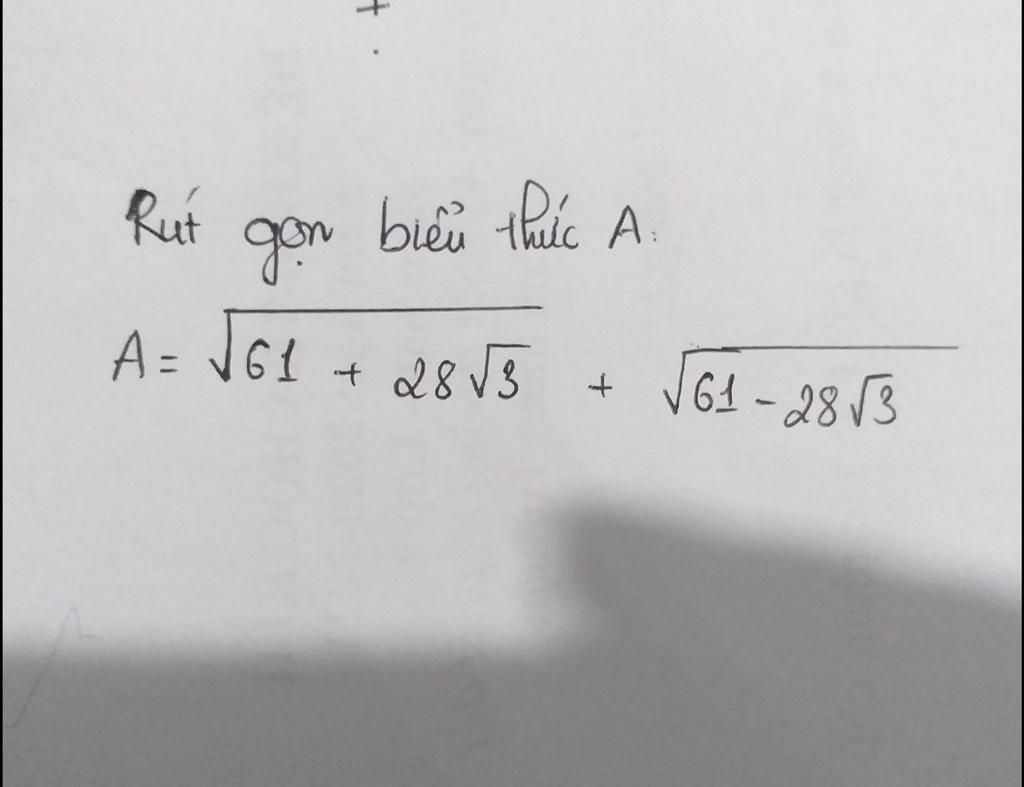 Rút gọn biểu thức A.
A = √61 + 28√3 + √61 - 28√3